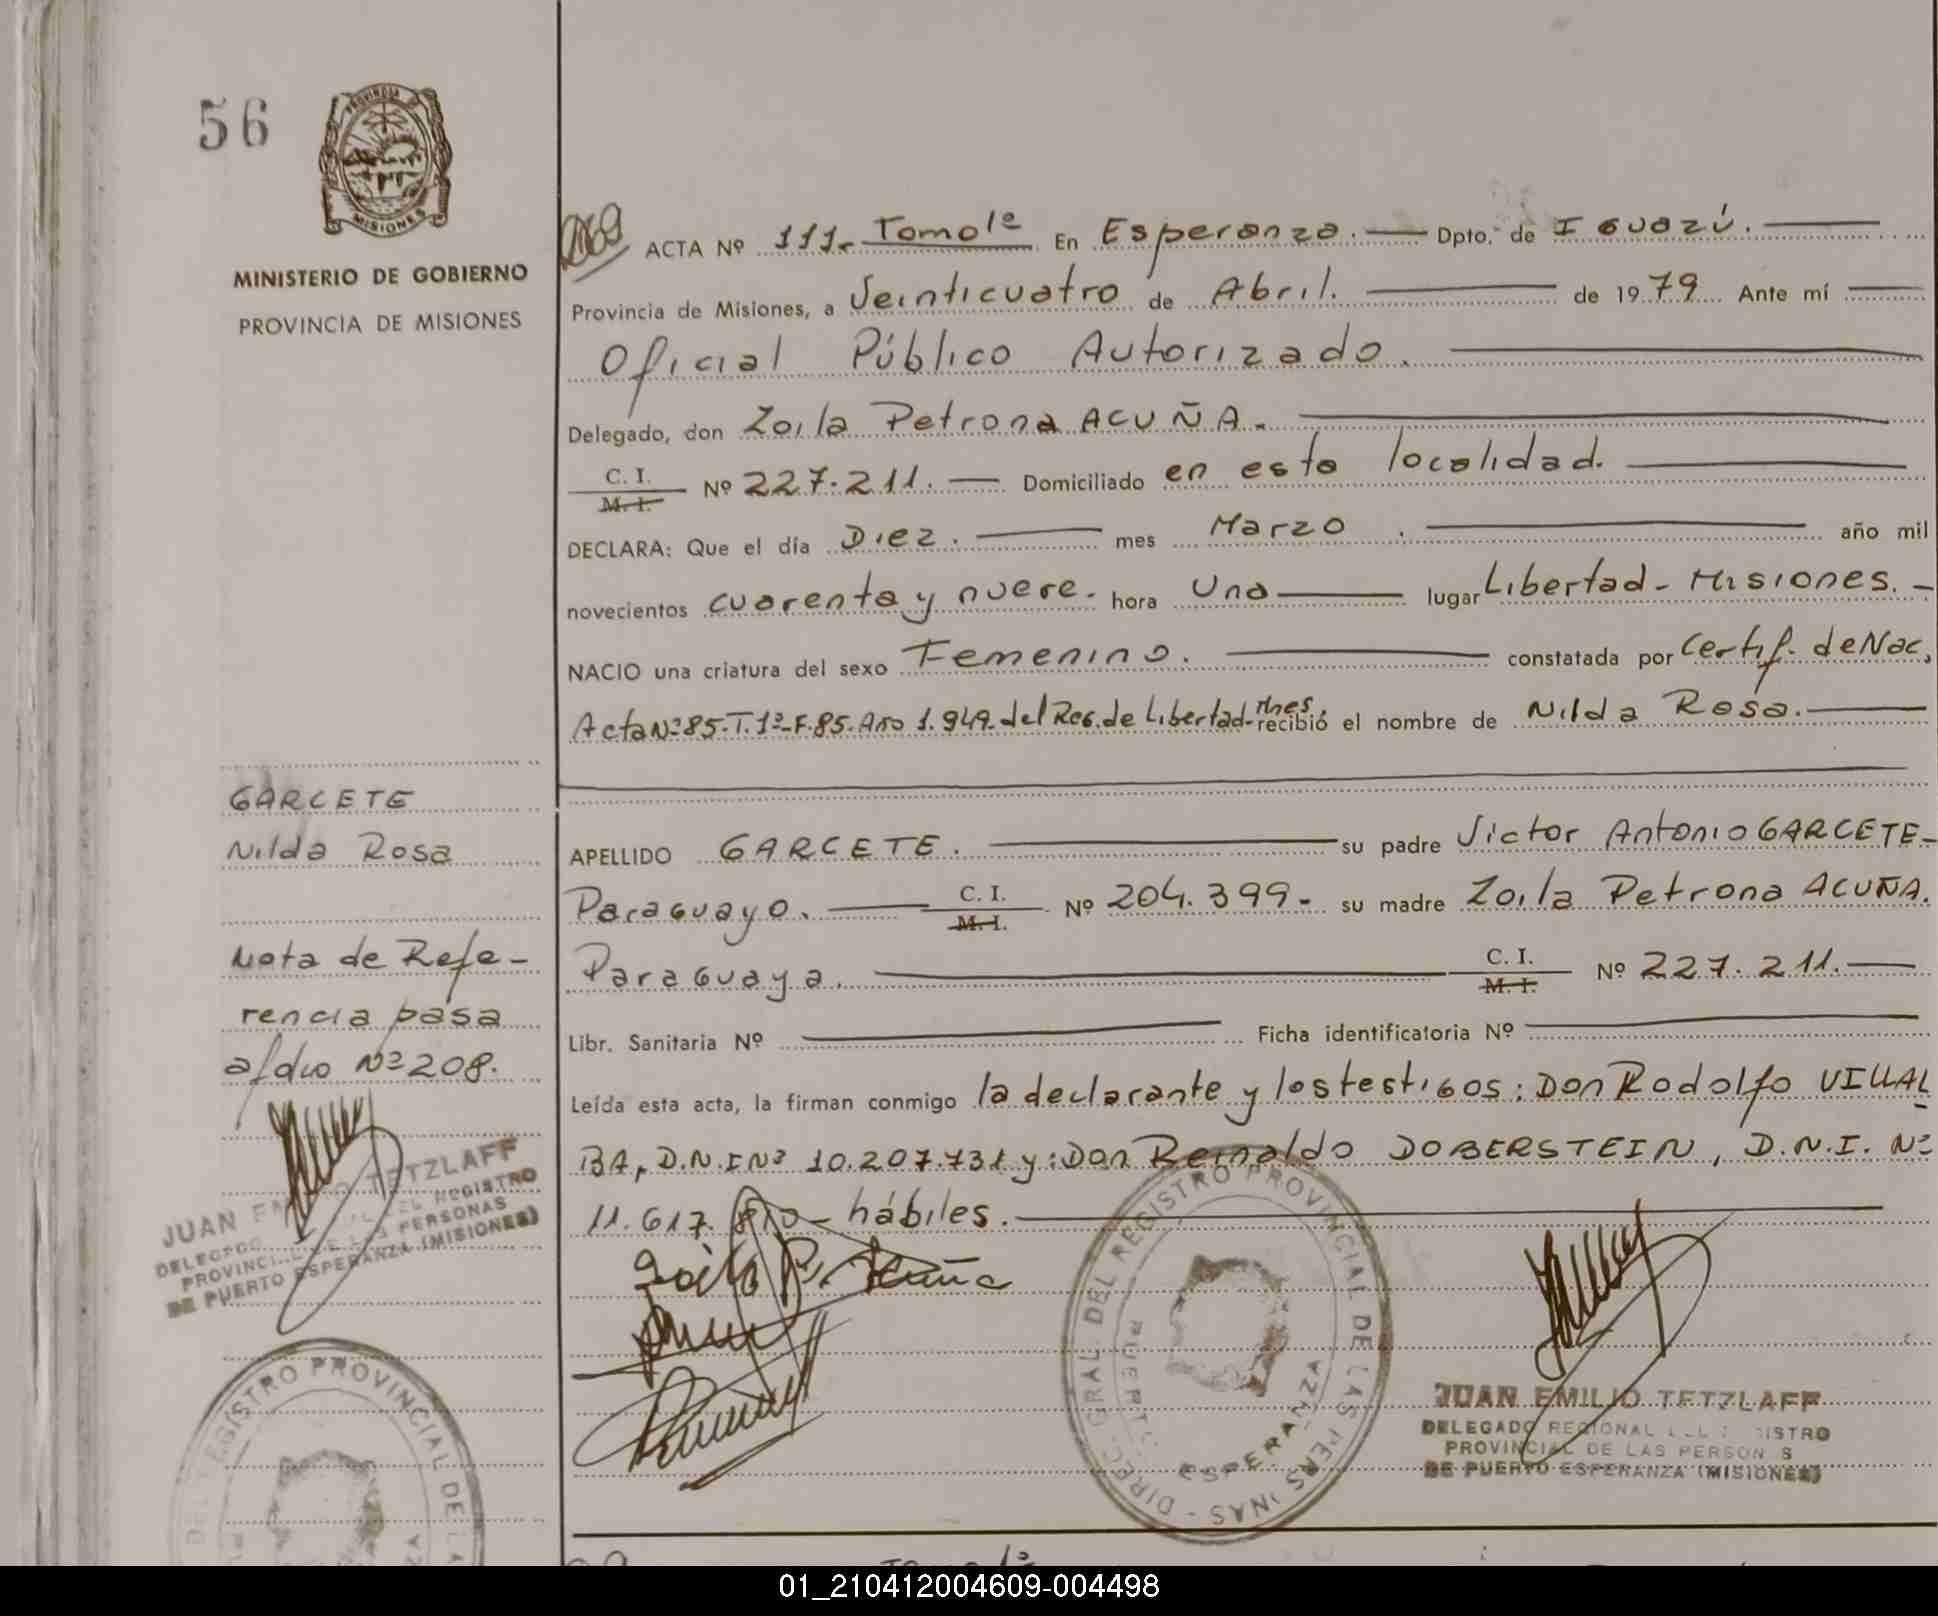 56
PROVINCIA DE
MISIONES
MINISTERIO DE GOBIERNO
PROVINCIA DE MISIONES
ACTA Nº 111.- Tomo 1º En Esperanza. Dpto. de Iguazú.
Provincia de Misiones, a Veinticuatro de Abril. de 1979 Ante mí
Oficial Público Autorizado.
Delegado, don Zoila Petrona ACUÑA.
C. I.
M. I. Nº 227.211. Domiciliado en esta localidad.
DECLARA: Que el día Diez. mes Marzo. año mil
novecientos cuarenta y nueve. hora Una lugar Libertad - Misiones. -
NACIO una criatura del sexo Femenino. constatada por Certif. de Nac,
Acta Nº 85-T.1º-F.85-Año 1.949-del Reg. de Libertad-Mnes, recibió el nombre de Nilda Rosa.
GARCETE
Nilda Rosa
APELLIDO GARCETE. su padre Victor Antonio GARCETE-
Paraguayo. C. I. M. I. Nº 204.399- su madre Zoila Petrona ACUÑA.
Paraguaya. C. I. M. I. Nº 227.211.
Nota de Refe-
rencia pasa
al dio Nº 208.
Libr. Sanitaria Nº Ficha identificatoria Nº
Leída esta acta, la firman conmigo la declarante y los testigos: Don Rodolfo VILLAL
BA, D.N.I Nº 10.207.731 y: Don Reinaldo DOBERSTEIN, D.N.I. Nº
11.617. hábiles.
Zoila P. Acuña
JUAN EMILIO TETZLAFF
DELEGADO REGIONAL DEL REGISTRO
PROVINCIAL DE LAS PERSONAS
DE PUERTO ESPERANZA (MISIONES)
DIREC. GRAL. DEL REGISTRO PROVINCIAL DE LAS PERSONAS
PUERTO ESPERANZA
JUAN EMILIO TETZLAFF
DELEGADO REGIONAL DEL REGISTRO
PROVINCIAL DE LAS PERSONAS
DE PUERTO ESPERANZA (MISIONES)
DEL REGISTRO PROVINCIAL DE LA
01_210412004609-004498